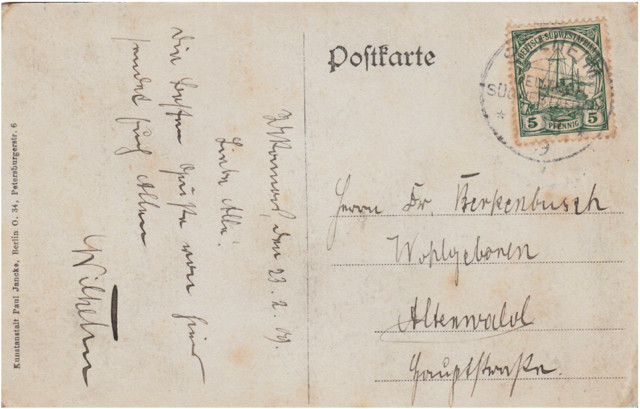 Postkarte
DEUTSCH-SÜDWESTAFRIKA
5 PFENNIG 5
den 23. 2. 09.
Liebe Alle!
Die besten Grüße von hier
sendet Euch Allen
Wilhelm
Herrn Dr. Berkenbusch
Wohlgeboren
Altenwald
Hauptstraße.
Kunstanstalt Paul Jancke, Berlin O. 34, Petersburgerstr. 6